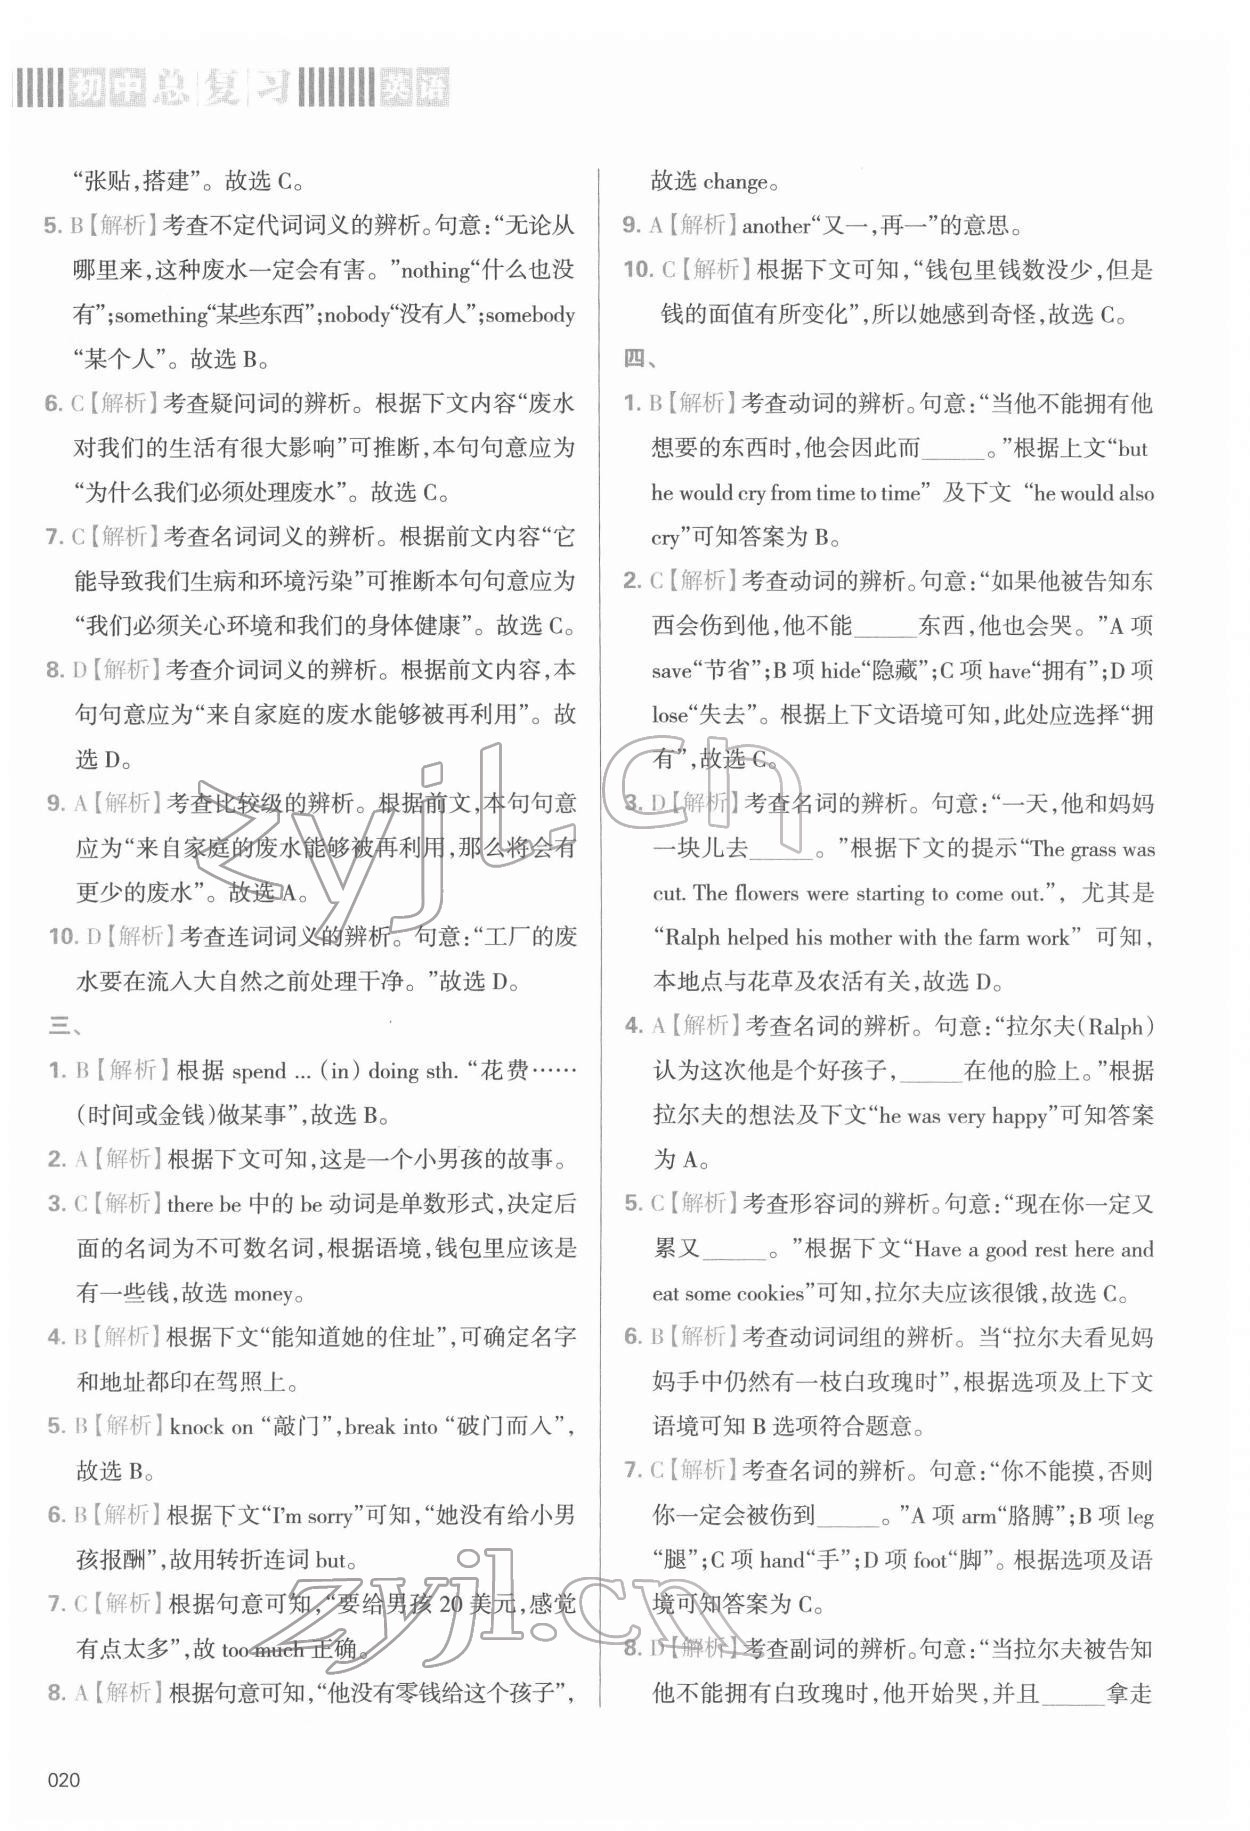 初中总复习 英语
“张贴,搭建”。故选 C。
5. B【解析】考查不定代词词义的辨析。句意:“无论从
哪里来,这种废水一定会有害。”nothing“什么也没
有”;something“某些东西”;nobody“没有人”;somebody
“某个人”。故选 B。
6. C【解析】考查疑问词的辨析。根据下文内容“废水
对我们的生活有很大影响”可推断,本句句意应为
“为什么我们必须处理废水”。故选 C。
7. C【解析】考查名词词义的辨析。根据前文内容“它
能导致我们生病和环境污染”可推断本句句意应为
“我们必须关心环境和我们的身体健康”。故选 C。
8. D【解析】考查介词词义的辨析。根据前文内容,本
句句意应为“来自家庭的废水能够被再利用”。故
选 D。
9. A【解析】考查比较级的辨析。根据前文,本句句意
应为“来自家庭的废水能够被再利用,那么将会有
更少的废水”。故选 A。
10. D【解析】考查连词词义的辨析。句意:“工厂的废
水要在流入大自然之前处理干净。”故选 D。
三、
1. B【解析】根据 spend ... (in) doing sth. “花费……
(时间或金钱)做某事”,故选 B。
2. A【解析】根据下文可知,这是一个小男孩的故事。
3. C【解析】there be 中的 be 动词是单数形式,决定后
面的名词为不可数名词,根据语境,钱包里应该是
有一些钱,故选 money。
4. B【解析】根据下文“能知道她的住址”,可确定名字
和地址都印在驾照上。
5. B【解析】knock on “敲门”,break into “破门而入”,
故选 B。
6. B【解析】根据下文“I'm sorry”可知,“她没有给小男
孩报酬”,故用转折连词 but。
7. C【解析】根据句意可知,“要给男孩 20 美元,感觉
有点太多”,故 too much 正确。
8. A【解析】根据句意可知,“他没有零钱给这个孩子”,
故选 change。
9. A【解析】another“又一,再一”的意思。
10. C【解析】根据下文可知,“钱包里钱数没少,但是
钱的面值有所变化”,所以她感到奇怪,故选 C。
四、
1. B【解析】考查动词的辨析。句意:“当他不能拥有他
想要的东西时,他会因此而_____。”根据上文“but
he would cry from time to time” 及下文 “he would also
cry”可知答案为 B。
2. C【解析】考查动词的辨析。句意:“如果他被告知东
西会伤到他,他不能_____东西,他也会哭。”A 项
save“节省”;B 项 hide“隐藏”;C 项 have“拥有”;D 项
lose“失去”。根据上下文语境可知,此处应选择“拥
有”,故选 C。
3. D【解析】考查名词的辨析。句意:“一天,他和妈妈
一块儿去_____。”根据下文的提示“The grass was
cut. The flowers were starting to come out.”, 尤其是
“Ralph helped his mother with the farm work” 可知,
本地点与花草及农活有关,故选 D。
4. A【解析】考查名词的辨析。句意:“拉尔夫(Ralph)
认为这次他是个好孩子,_____在他的脸上。”根据
拉尔夫的想法及下文“he was very happy”可知答案
为 A。
5. C【解析】考查形容词的辨析。句意:“现在你一定又
累又_____。”根据下文“Have a good rest here and
eat some cookies”可知,拉尔夫应该很饿,故选 C。
6. B【解析】考查动词词组的辨析。当“拉尔夫看见妈
妈手中仍然有一枝白玫瑰时”,根据选项及上下文
语境可知 B 选项符合题意。
7. C【解析】考查名词的辨析。句意:“你不能摸,否则
你一定会被伤到_____。”A 项 arm“胳膊”;B 项 leg
“腿”;C 项 hand“手”;D 项 foot“脚”。根据选项及语
境可知答案为 C。
8. D【解析】考查副词的辨析。句意:“当拉尔夫被告知
他不能拥有白玫瑰时,他开始哭,并且_____拿走
020
zyjl.cn
zyjl.cn